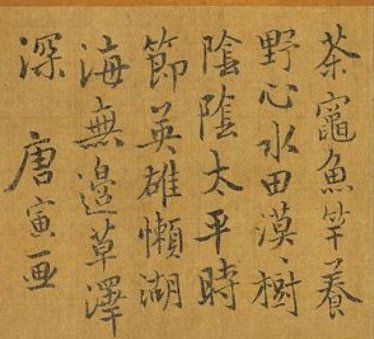 茶竈魚竿養
野心水田漠〻樹
陰陰太平時
節英雄懶湖
海無邉草澤
深　唐寅画